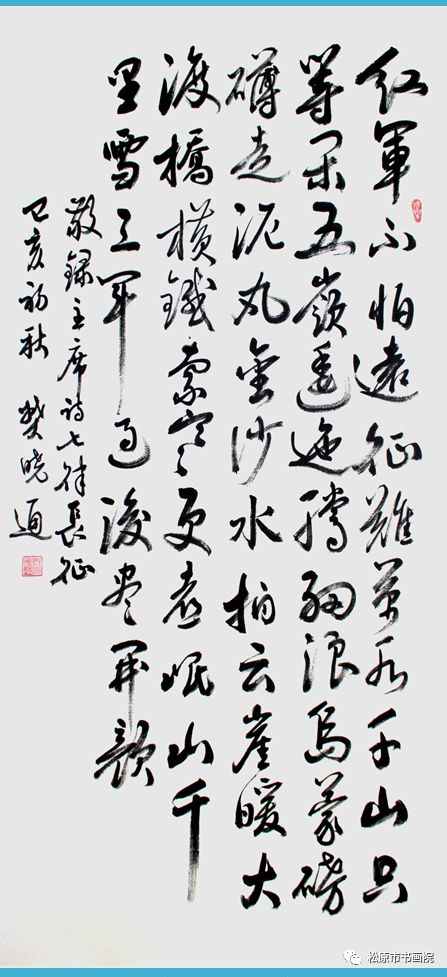 红軍不怕遠征難萬水千山只
等闲五嶺逶迤腾细浪烏蒙磅
礴走泥丸金沙水拍云崖暖大
渡橋横鐵索寒更喜岷山千
里雪三军过後尽開颜
敬録主席诗七律長征
己亥初秋 樊晓通
松原市书画院